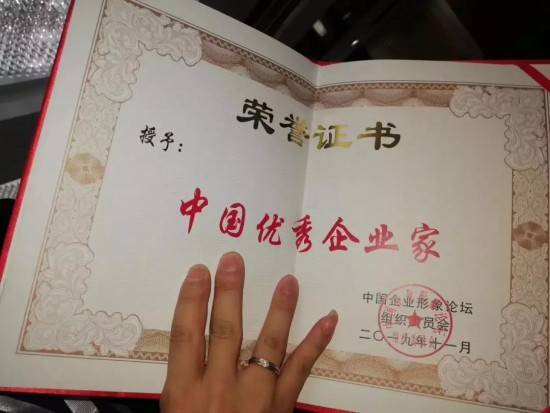 荣誉证书
授予：
中国优秀企业家
中国企业形象论坛
组织委员会
二〇一九年十一月